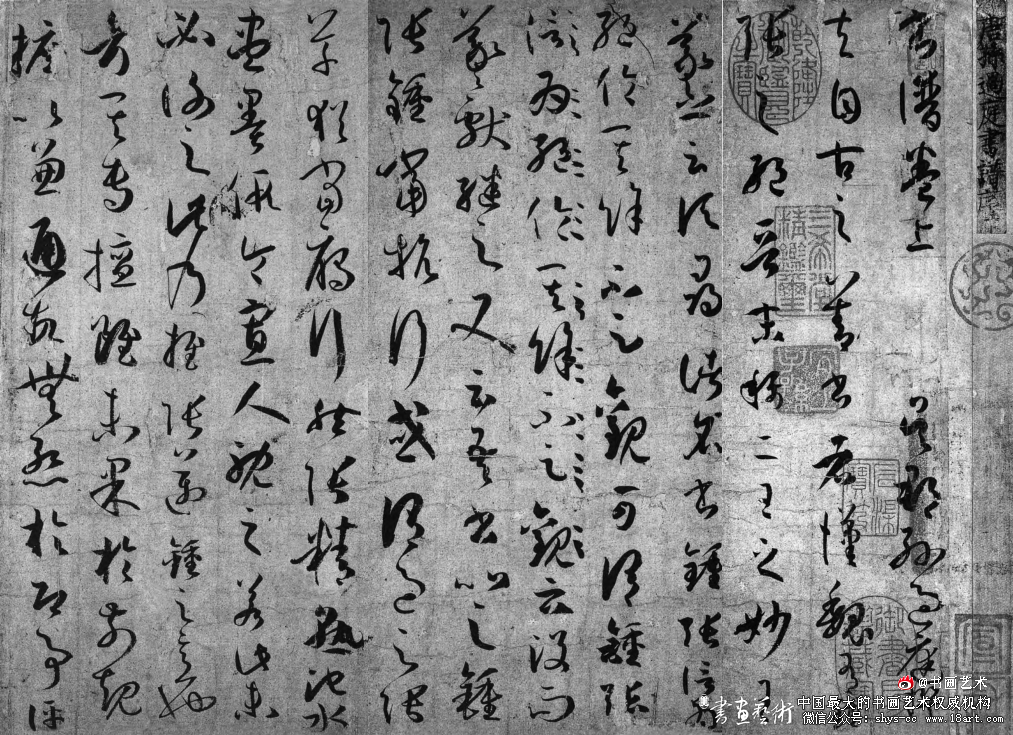 唐孫過庭書譜序
書譜卷上 吳郡孫過庭撰
夫自古之善書者漢魏有
張之絕晉末稱二王之妙王
羲之云頃尋諸名書鍾張信為
絕倫其餘不足觀可謂鍾張
信為絕倫其餘不足觀云沒而
羲獻繼之又云吾書比之鍾
張鍾當抗行或謂過之張
草猶當鴈行然張精熟池水
盡墨假令寡人耽之若此未
必謝之此乃推張邁鍾之意也
考其專擅雖未果於前規
摭以兼通故無慚於即事評
三希堂精鑑璽
宜子孫
石渠寶笈
@书画艺术
書畫藝術
中国最大的书画艺术权威机构
微信公众号：shys-cc www.18art.com